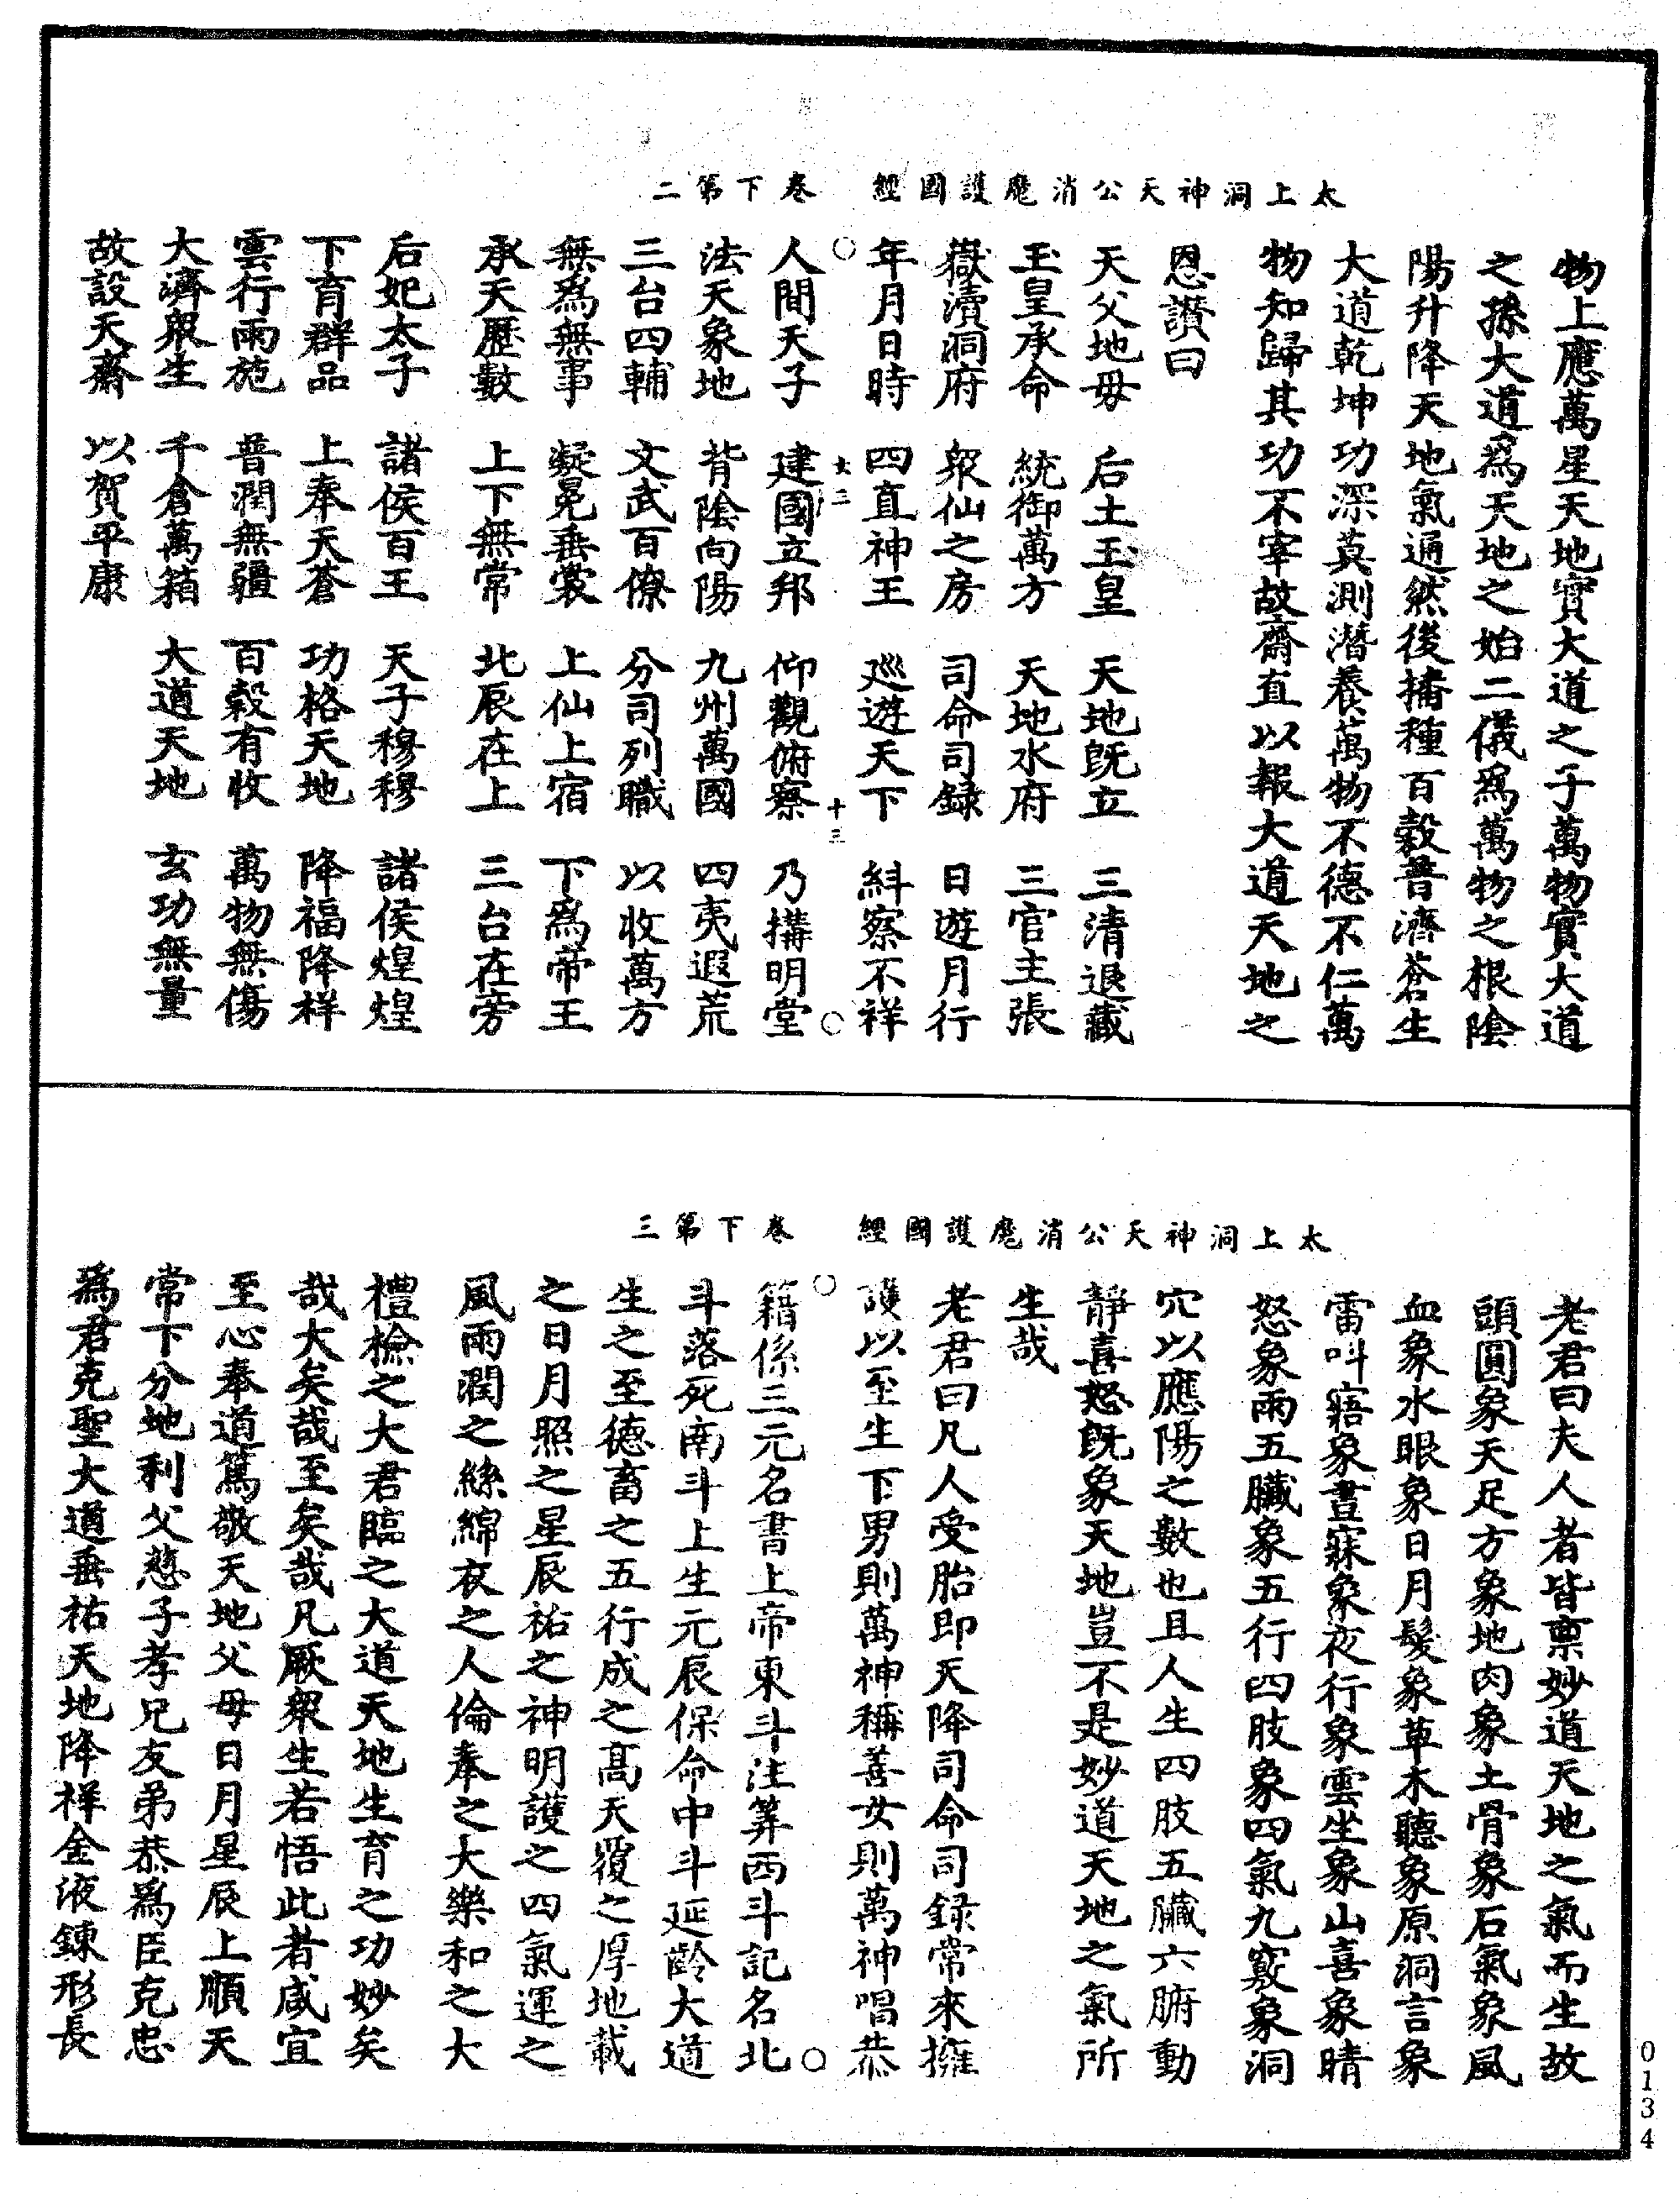 太上洞神天公消魔護國經　卷下第二
物上應萬星天地實大道之子萬物實大道
之孫大道爲天地之始二儀爲萬物之根陰
陽升降天地氣通然後播種百穀普濟蒼生
大道乾坤功深莫測潛養萬物不德不仁萬
物知歸其功不宰故齋直以報大道天地之
恩讚曰
天父地母　后土玉皇　天地既立　三清退藏
玉皇承命　統御萬方　天地水府　三官主張
嶽瀆洞府　衆仙之房　司命司録　日遊月行
年月日時　四直神王　巡遊天下　糾察不祥
○　大二　十三　○
人間天子　建國立邦　仰觀俯察　乃搆明堂
法天象地　背陰向陽　九州萬國　四夷遐荒
三台四輔　文武百僚　分司列職　以收萬方
無爲無事　凝冕垂裳　上仙上宿　下爲帝王
承天歷數　上下無常　北辰在上　三台在旁
后妃太子　諸侯百王　天子穆穆　諸侯煌煌
下育群品　上奉天蒼　功格天地　降福降祥
雲行雨施　普潤無疆　百穀有收　萬物無傷
大濟衆生　千倉萬箱　大道天地　玄功無量
故設天齋　以賀平康
太上洞神天公消魔護國經　卷下第三
老君曰夫人者皆稟妙道天地之氣而生故
頭圓象天足方象地肉象土骨象石氣象風
血象水眼象日月髮象草木聽象原洞言象
雷叫寤象晝寐象夜行象雲坐象山喜象晴
怒象雨五臟象五行四肢象四氣九竅象洞
穴以應陽之數也且人生四肢五臟六腑動
靜喜怒既象天地豈不是妙道天地之氣所
生哉
老君曰凡人受胎即天降司命司録常來擁
護以至生下男則萬神稱善女則萬神唱恭
○　○
籍係三元名書上帝東斗注筭西斗記名北
斗落死南斗上生元辰保命中斗延齡大道
生之至德畜之五行成之高天覆之厚地載
之日月照之星辰祐之神明護之四氣運之
風雨潤之絲綿衣之人倫奉之大樂和之大
禮檢之大君臨之大道天地生育之功妙矣
哉大矣哉至矣哉凡厥衆生若悟此者咸宜
至心奉道篤敬天地父母日月星辰上順天
常下分地利父慈子孝兄友弟恭爲臣克忠
爲君克聖大道垂祐天地降祥金液鍊形長
0134